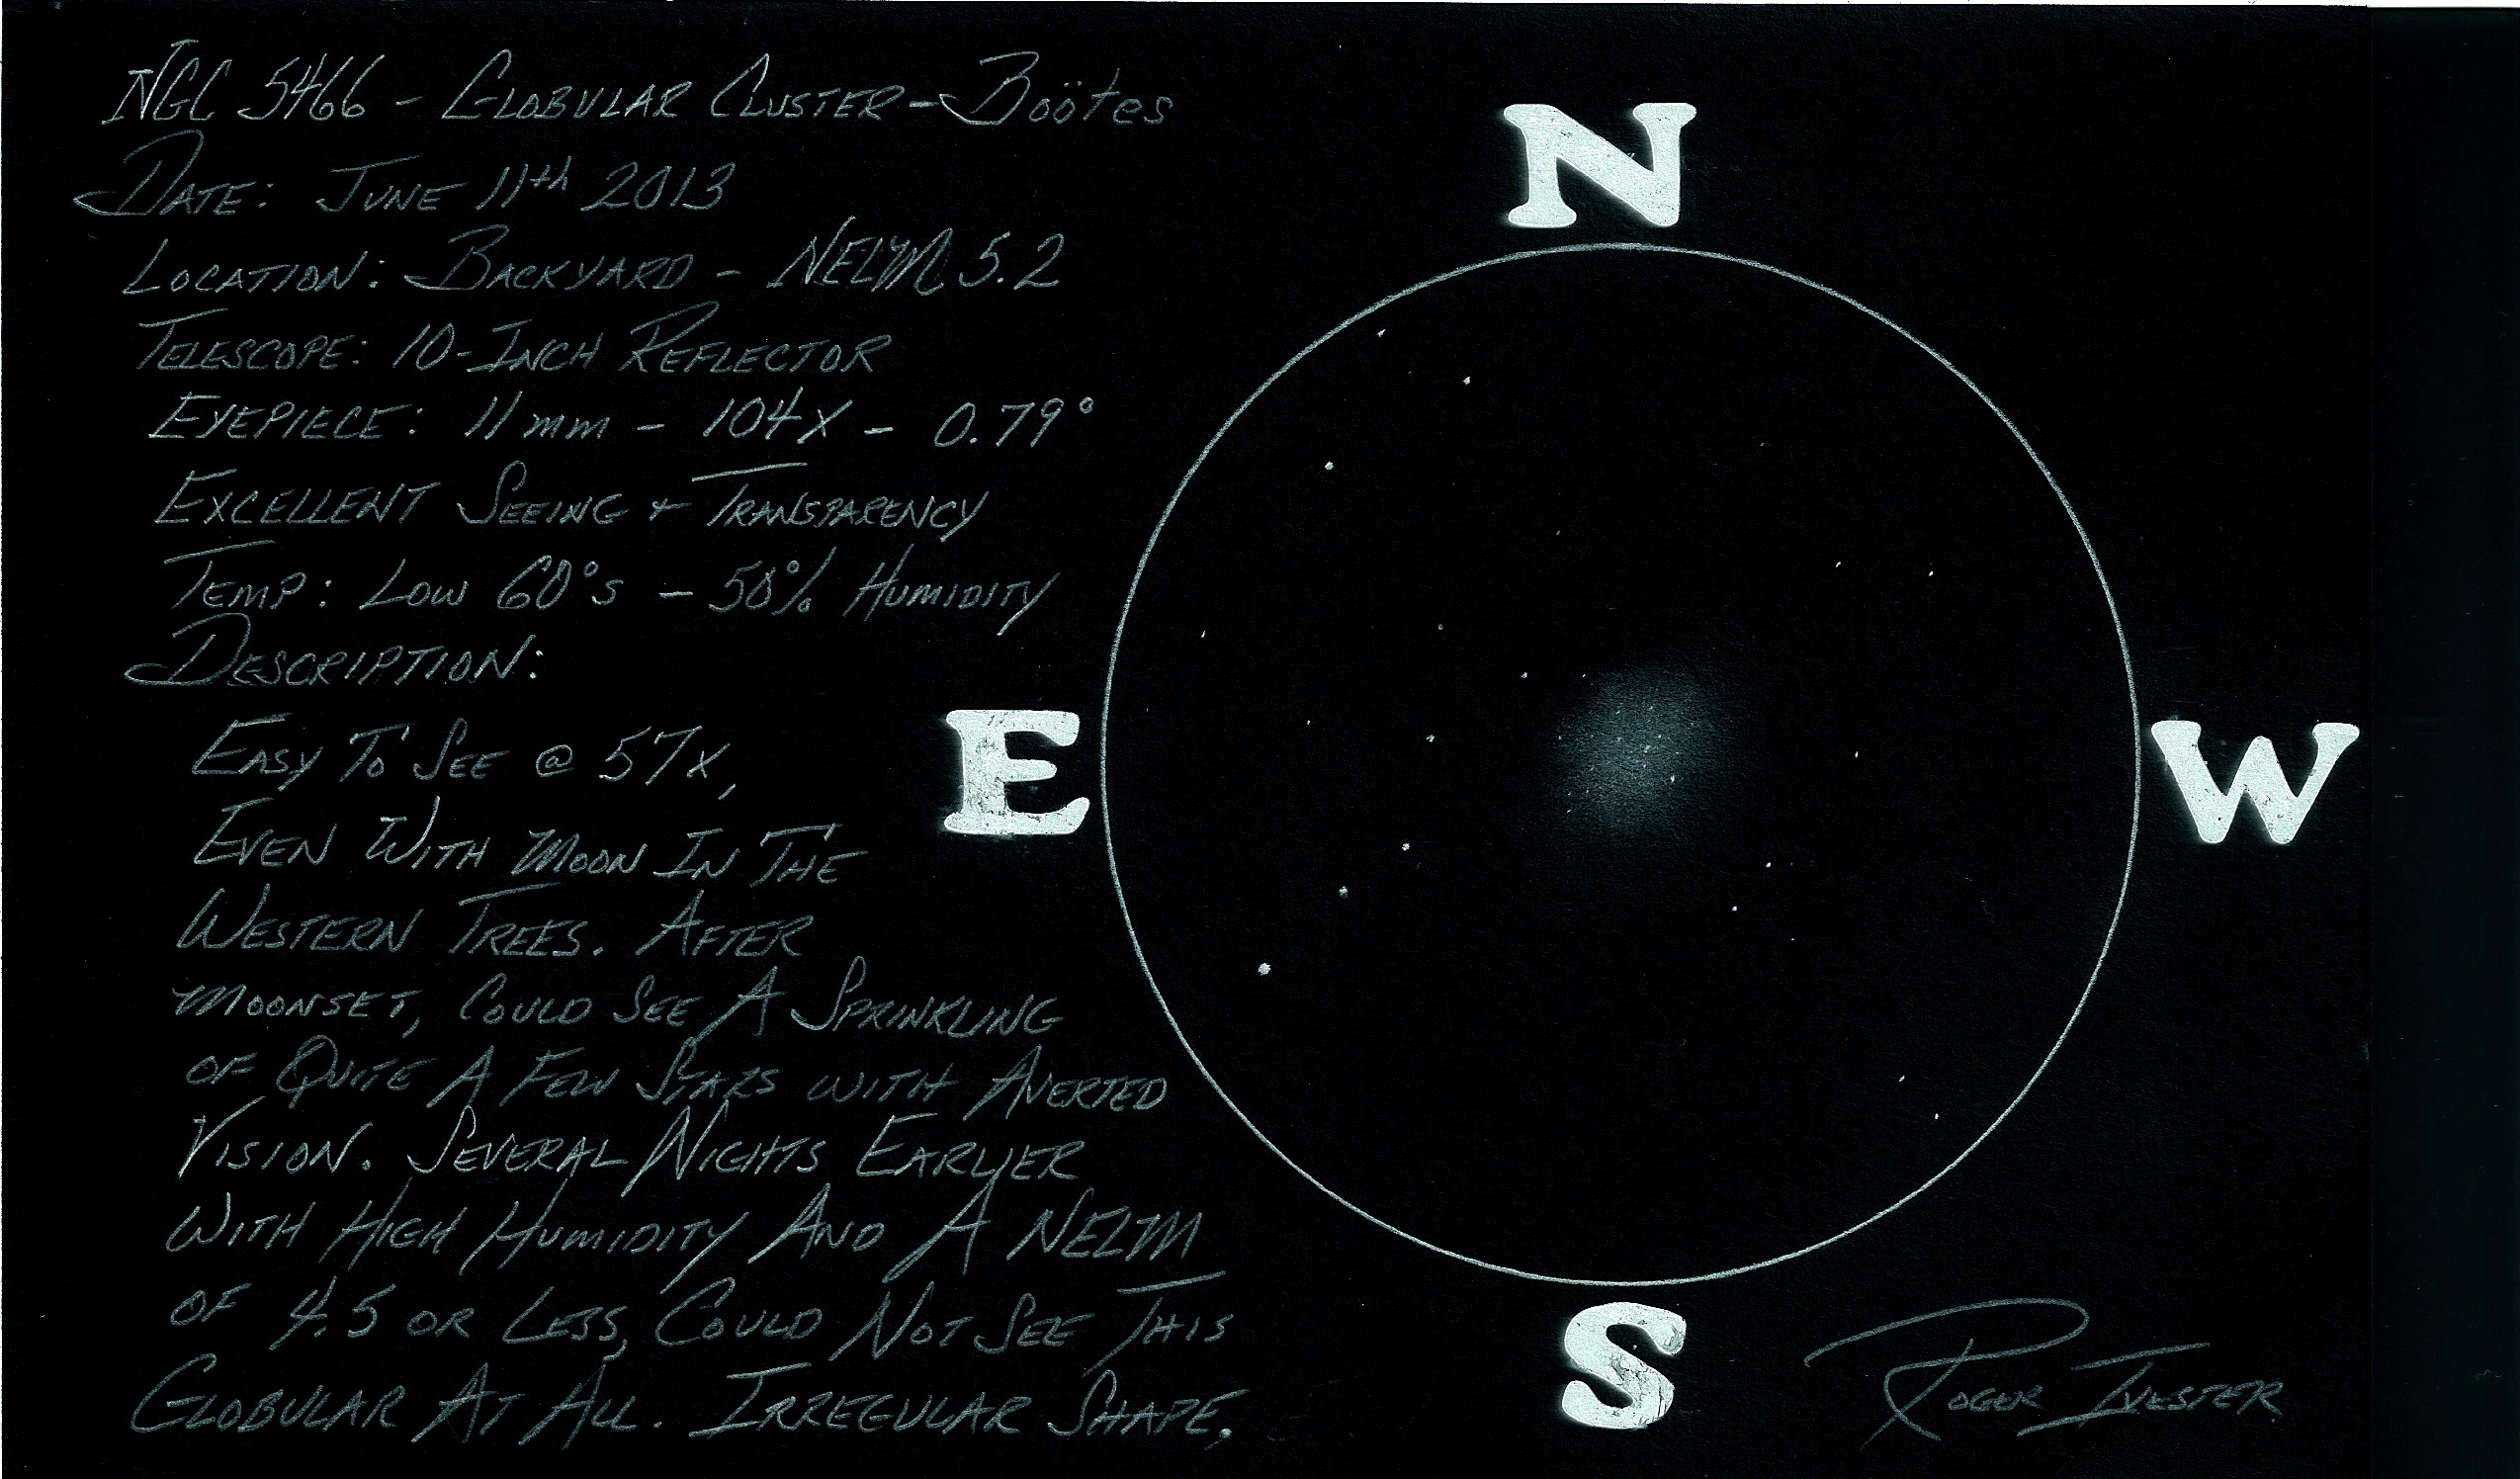 NGC 5466 - GLOBULAR CLUSTER - Boötes
DATE: JUNE 11th 2013
LOCATION: BACKYARD - NELM 5.2
TELESCOPE: 10-INCH REFLECTOR
EYEPIECE: 11mm - 104X - 0.79°
EXCELLENT SEEING + TRANSPARENCY
TEMP: LOW 60°S - 50% HUMIDITY
DESCRIPTION:
EASY TO SEE @ 57X,
EVEN WITH MOON IN THE
WESTERN TREES. AFTER
MOONSET, COULD SEE A SPRINKLING
OF QUITE A FEW STARS WITH AVERTED
VISION. SEVERAL NIGHTS EARLIER
WITH HIGH HUMIDITY AND A NELM
OF 4.5 OR LESS, COULD NOT SEE THIS
GLOBULAR AT ALL. IRREGULAR SHAPE.
N
E
W
S
ROGER IVESTER